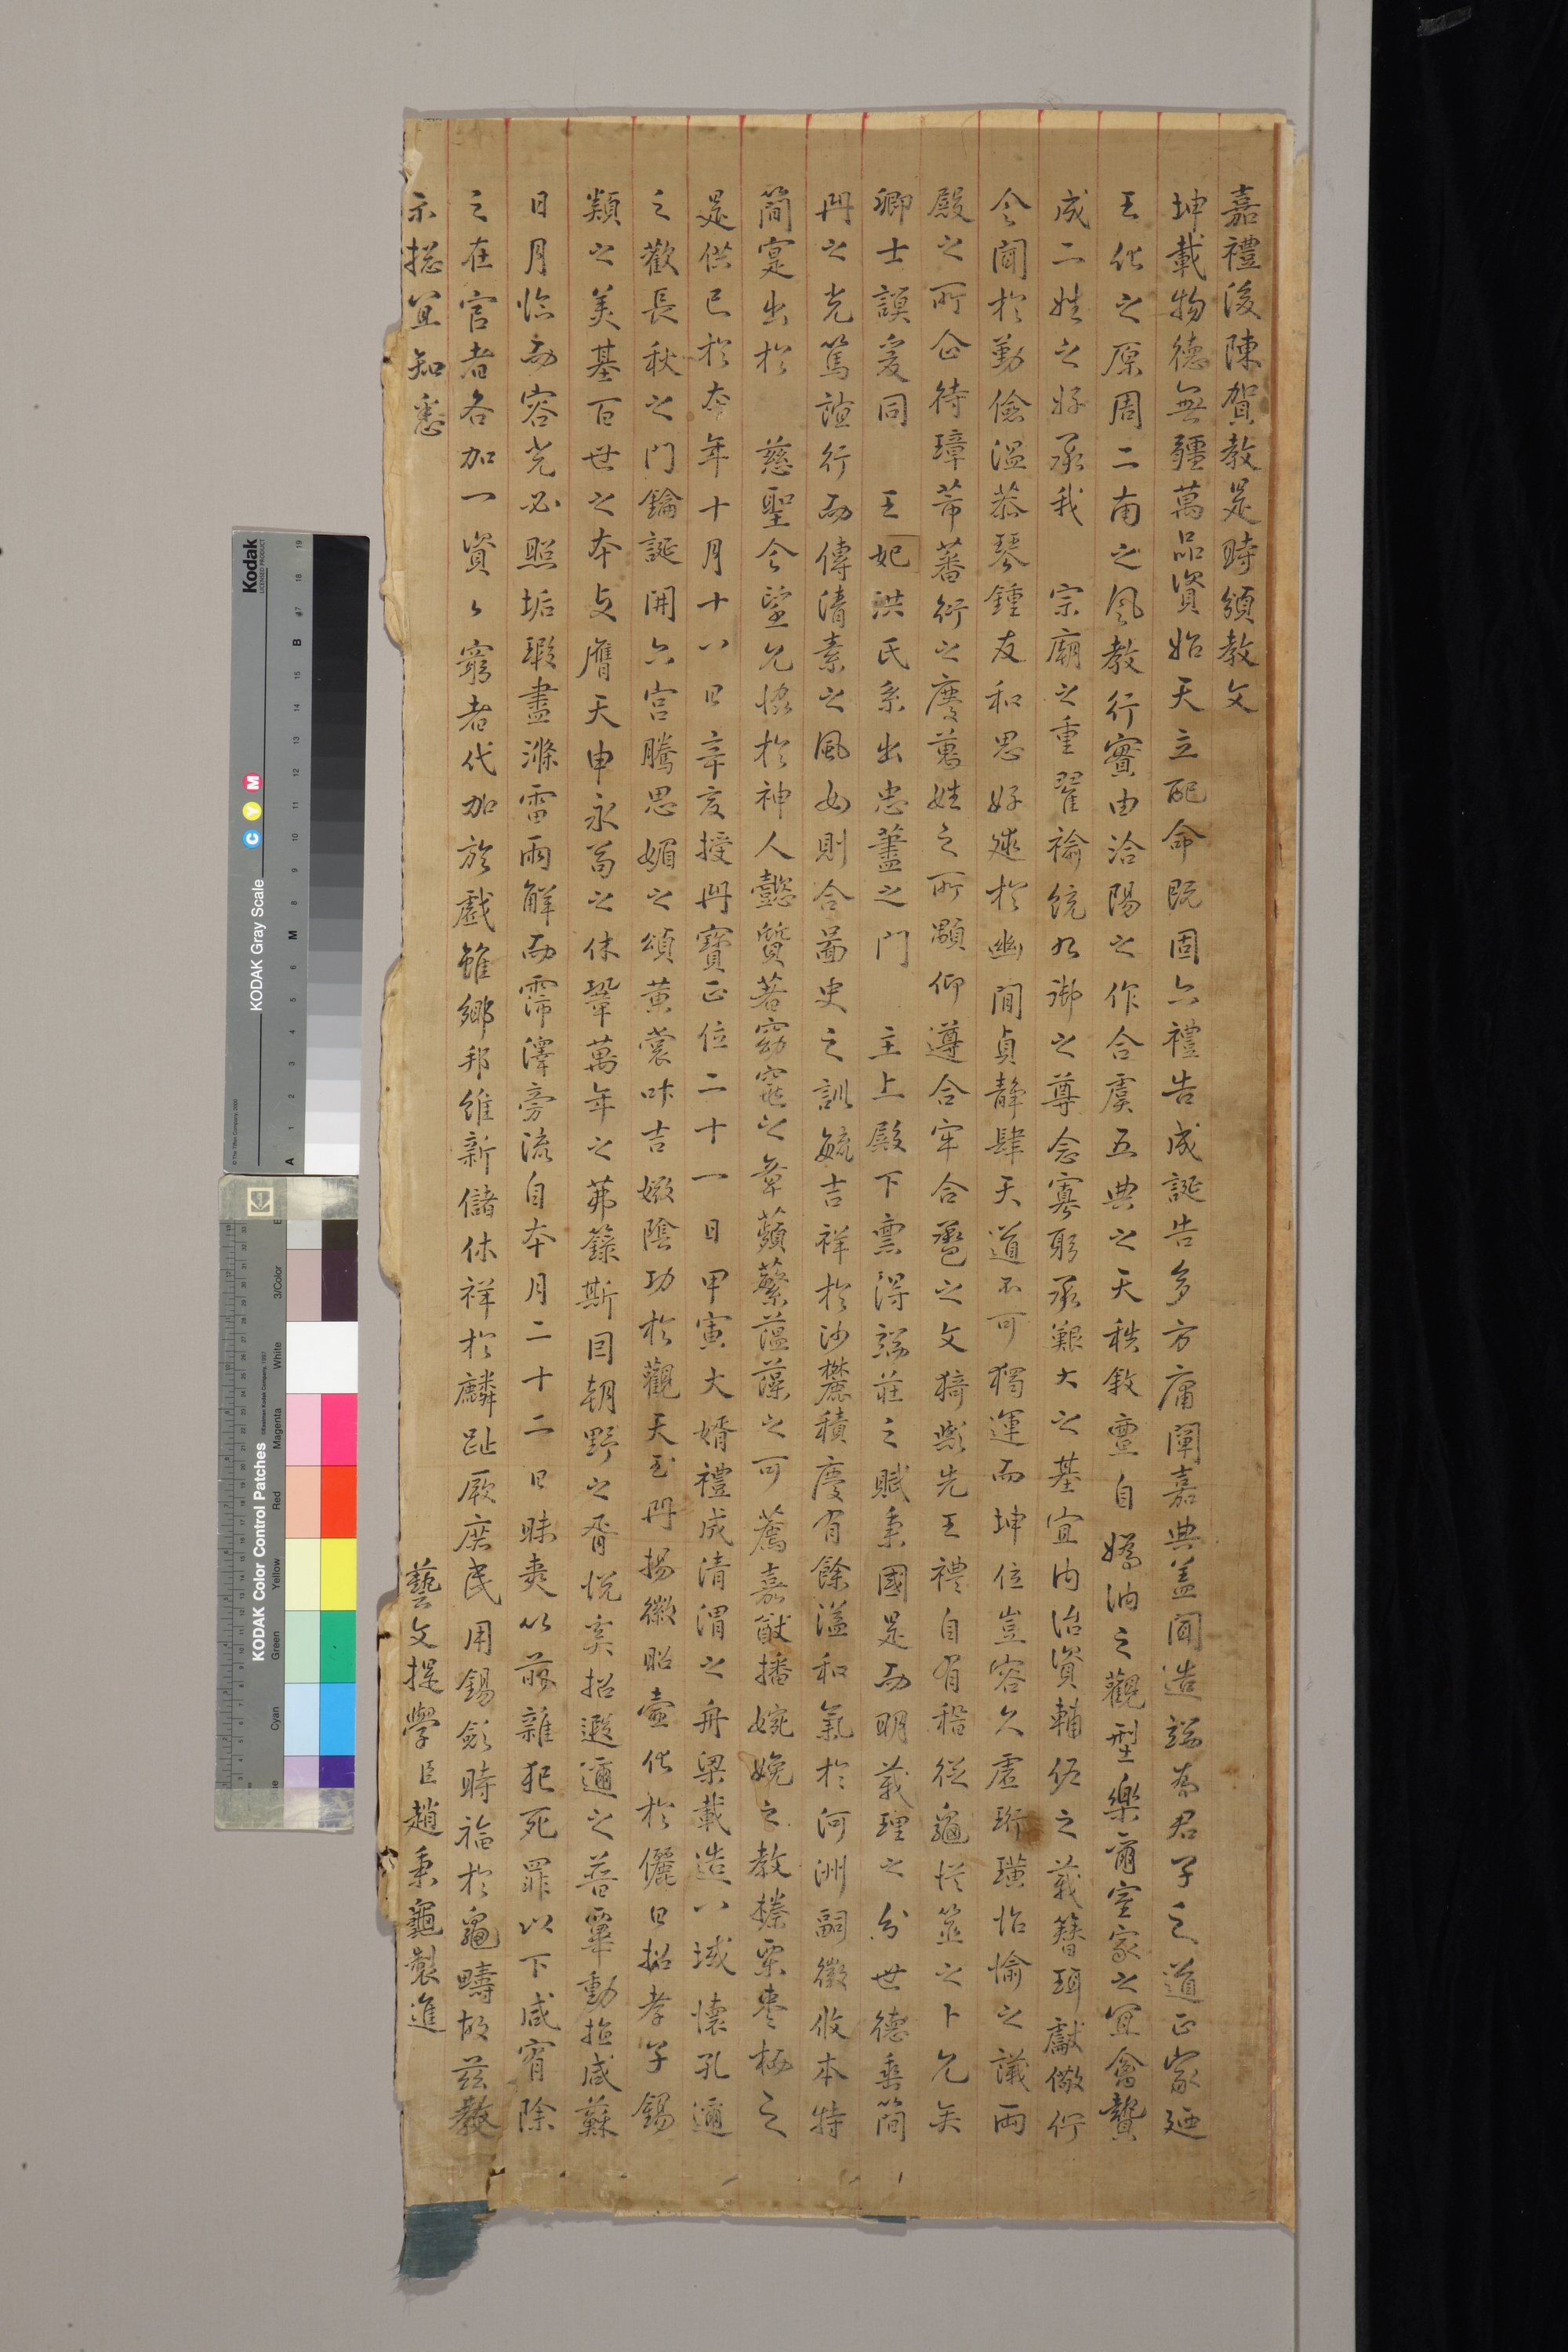 嘉禮後陳賀教是時頒教文
坤載物德無疆萬品資始天立配命既固六禮告成誕告多方庸闡嘉典盖聞造端乎君子之道正家廼
王化之原周二南之風教行實由洽陽之作合虞五典之天秩敘亶自嬀汭之觀型樂爾室家之宜奮贊
成二姓之好承我 宗廟之重翟褕統九御之尊念寡躬承艱大之基宜內治資輔佐之義簪珥獻儆衍
令聞於勤儉溫恭琴鍾友和思好逑於幽閒貞靜肆天道不可獨運而坤位豈容久虛珩璜怡愉之議両
殿之所企待璋芾蕃衍之慶萬姓之所顒仰遵合牢合巹之文猗歟先王禮自有稽從龜從筮之卜允矣
卿士謨爰同 王妃洪氏系出忠藎之門 主上殿下禀得端莊之賦秉國是而明義理之分世德垂簡
冊之光篤誼行而傳清素之風女則合啚史之訓毓吉祥於沙麓積慶有餘溢和氣於河洲嗣徽攸本特
簡寔出於 慈聖令望允愜於神人懿質著窈窕之章蘋蘩薀藻之可薦嘉猷播婉娩之教榛栗棗栴之
是供已於本年十月十八日辛亥授冊寶正位二十一日甲寅大婚禮成清渭之舟梁載造八域懷孔邇
之歡長秋之門鑰誕開六宮騰思媚之頌黃裳叶吉媺陰功於觀天玉冊揚徽昭壼化於儷日招孝子錫
類之美基百世之本爰膺天申永荷之休鞏萬年之茀籙斯囙朝野之胥悅奚招遐邇之普覃動植咸蘇
日月臨而容光必照垢瑕盡滌雷雨解而霈澤旁流自本月二十二日昧爽以前雜犯死罪以下咸宥除
之在官者各加一資資窮者代加於戲雖鄉邦維新儲休祥於麟趾厥庶民用錫歛時福於龜疇故玆教
示揔宜知悉 藝文提學臣趙秉龜製進
Kodak
LICENSED PRODUCT
KODAK Gray Scale
C Y M
A 1 2 3 4 5 6 M 8 9 10 11 12 13 14 15 B 17 18 19
© The Tiffen Company, 2000
KODAK Color Control Patches
Cyan Green Yellow Red Magenta White 3/Color